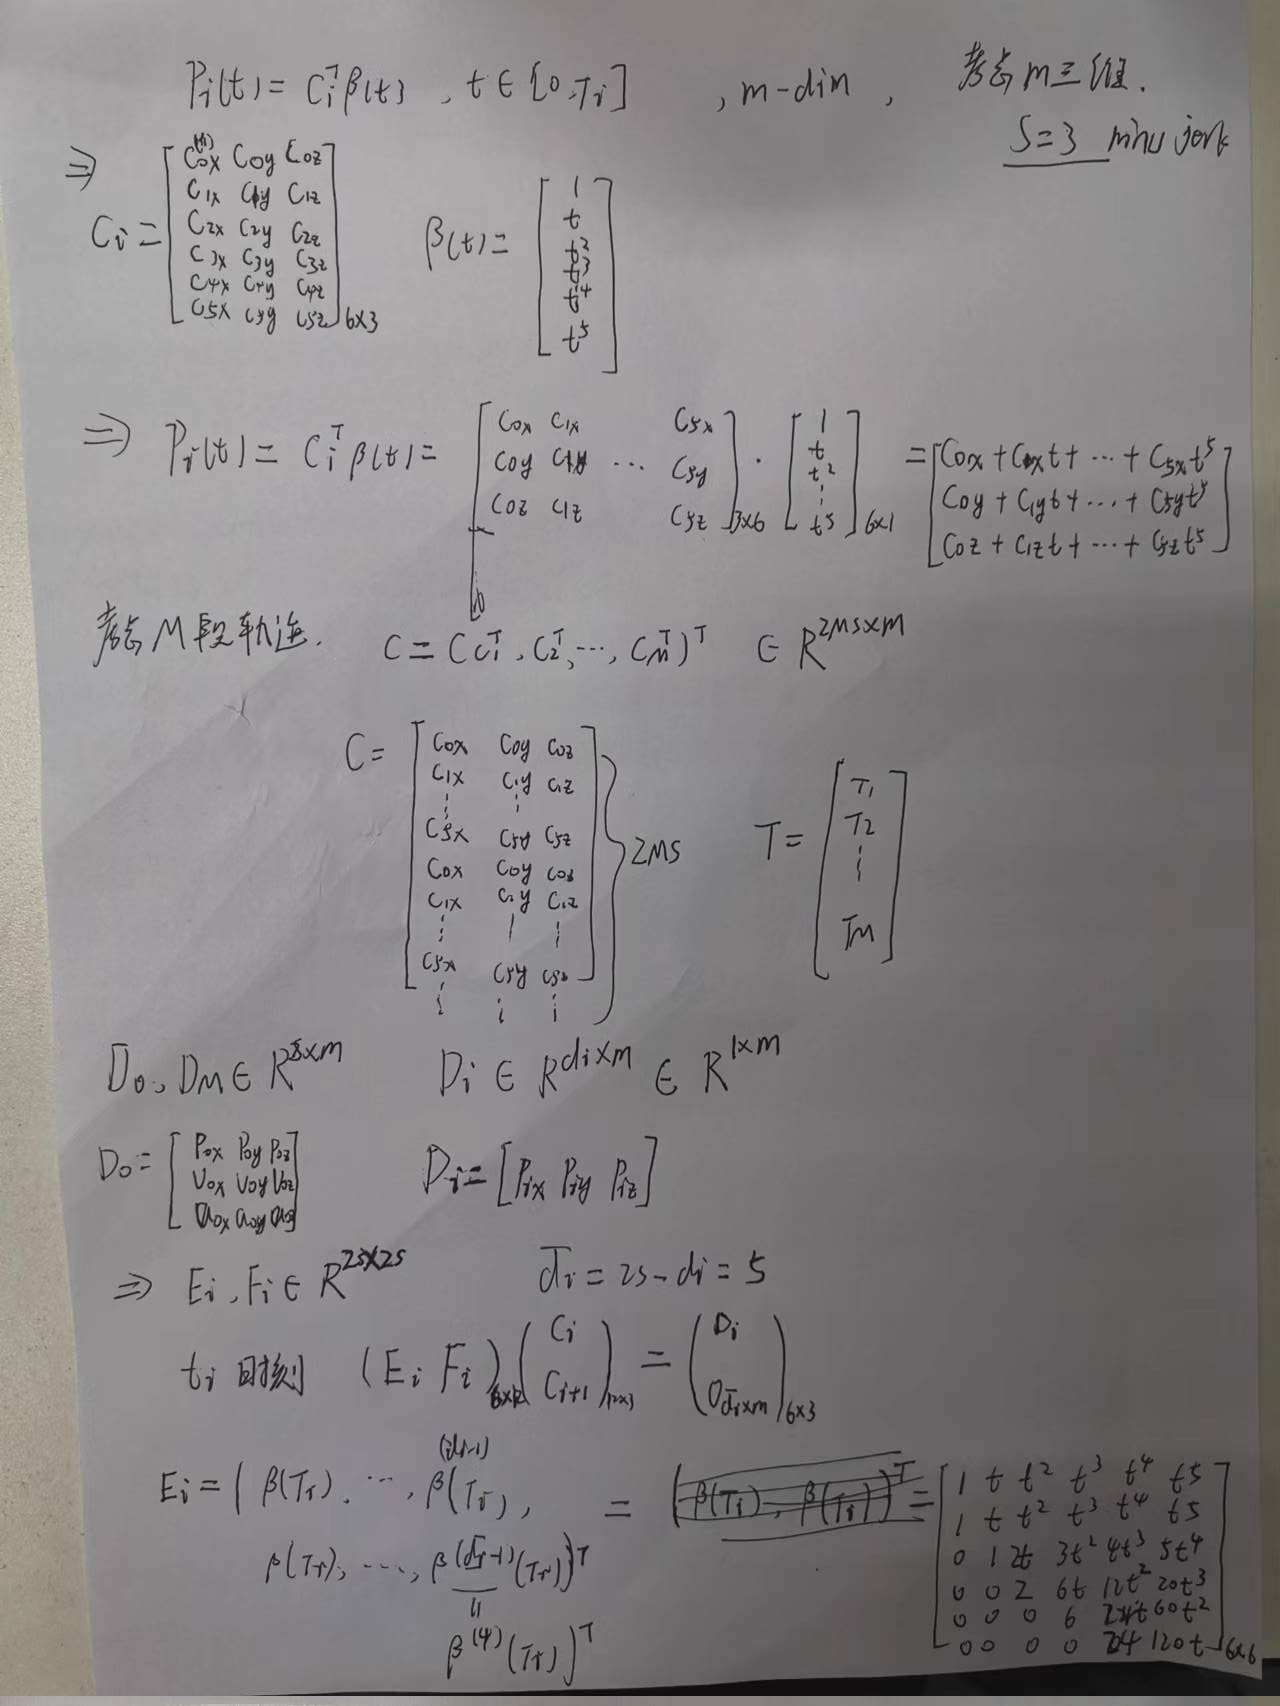 Pi(t) = Ci^T β(t), t ∈ [0, Ti], m-dim, 考虑m三维.
S=3 minu jerk
⇒ Ci = [C0x C0y C0z; C1x C1y C1z; C2x C2y C2z; C3x C3y C3z; C4x C4y C4z; C5x C5y C5z]6×3 β(t) = [1; t; t^2; t^3; t^4; t^5]
⇒ Pi(t) = Ci^T β(t) = [C0x C1x C5x; C0y C1y ... C5y; C0z C1z C5z]3×6 · [1; t; t^2; ⋮; t^5]6×1 = [C0x + C1xt + ... + C5xt^5; C0y + C1yt + ... + C5yt^5; C0z + C1zt + ... + C5zt^5]
考虑M段轨迹. C = (C1^T, C2^T, ..., CM^T)^T ∈ R^2Ms×m
C = [C0x C0y C0z; C1x C1y C1z; ⋮ ⋮; C5x C5y C5z; C0x C0y C0z; C1x C1y C1z; ⋮ ⋮ ⋮; C5x C5y C5z; ⋮ ⋮ ⋮] } 2MS T = [T1; T2; ⋮; TM]
D0, DM ∈ R^s×m Di ∈ R^di×m ∈ R^1×m
D0 = [P0x P0y P0z; V0x V0y V0z; a0x a0y a0z] Di = [Pix Piy Piz]
⇒ Ei, Fi ∈ R^2s×2s d̄i = 2s - di = 5
ti时刻 (Ei Fi)6×12 (Ci; Ci+1)12×3 = (Di; 0d̄i×m)6×3
Ei = (β(Ti), ..., β^(di-1)(Ti), = (β(Ti), β(Ti))^T = [1 t t^2 t^3 t^4 t^5; 1 t t^2 t^3 t^4 t^5; 0 1 2t 3t^2 4t^3 5t^4; 0 0 2 6t 12t^2 20t^3; 0 0 0 6 24t 60t^2; 0 0 0 0 24 120t]6×6
β(Ti), ..., β^(d̄i-1)(Ti))^T
β^(4)(Ti))^T